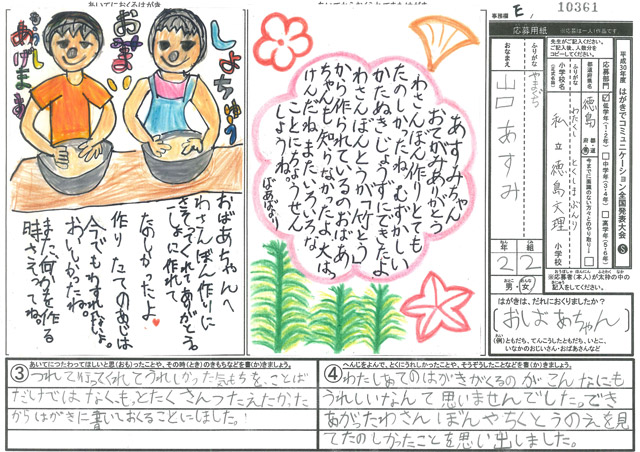 あいてにおくるはがき
しょちゅう
おみまい
もうしあげます
おばあちゃんへ
わさんぼん作りに
さそってくれてありがとう。
いっしょに作れて
たのしかったよ。
作りたてのあじは
今でもわすれないよ。
おいしかったね。
また何かを作る
時さそってね。
あすみちゃん
おてがみありがとう
わさんぼん作りとても
たのしかったね。むずかしい
かたぬきじょうずにできたよ
わさんぼんとうが「竹とう」
から作られているのおばあ
ちゃんも知らなかったよ。大は
けんだね。またいろいろな
ことにちょうせん
しようね。
ばあばより
事務欄 E, 10361
応募用紙
※応募は一人1作品です
先生がご記入ください。
ご記入後、人数分を
コピーしてください。
平成30年度 はがきでコミュニケーション全国発表大会 S
応募部門
低学年(1・2年)
中学年(3・4年)
高学年(5・6年)
今までに面識のない方々とのやり取り
都道府県名
徳島
都 道 府 県
小学校名
(正式名称)
ふりがな
わたくしりつ とくしまぶんり
私立徳島文理
小学校
ふりがな
やまぐち
おなまえ
山口あすみ
2 年
2 組
男・女
※応募者(本人)が太枠の中の
記入をしてください。
はがきは、だれにおくりましたか?
おばあちゃん
(例)ともだち、てんこうしたともだち、いとこ、
いなかのおじいさん・おばあさんなど
あいてにつたわってほしいと思(おも)ったことや、その時(とき)のきもちなどを書(か)きましょう。
③つれて行ってくれてうれしかった気もちを、ことば
だけではなくもっとたくさんつたえたかった
からはがきに書いておくることにしました。
へんじをよんで、とくにうれしかったことや、そうぞうしたことなどを書(か)きましょう。
④わたしあてのはがきがくるのがこんなにも
うれしいなんて思いませんでした。でき
あがったわさんぼんやちくとうのえを見
てたのしかったことを思い出しました。